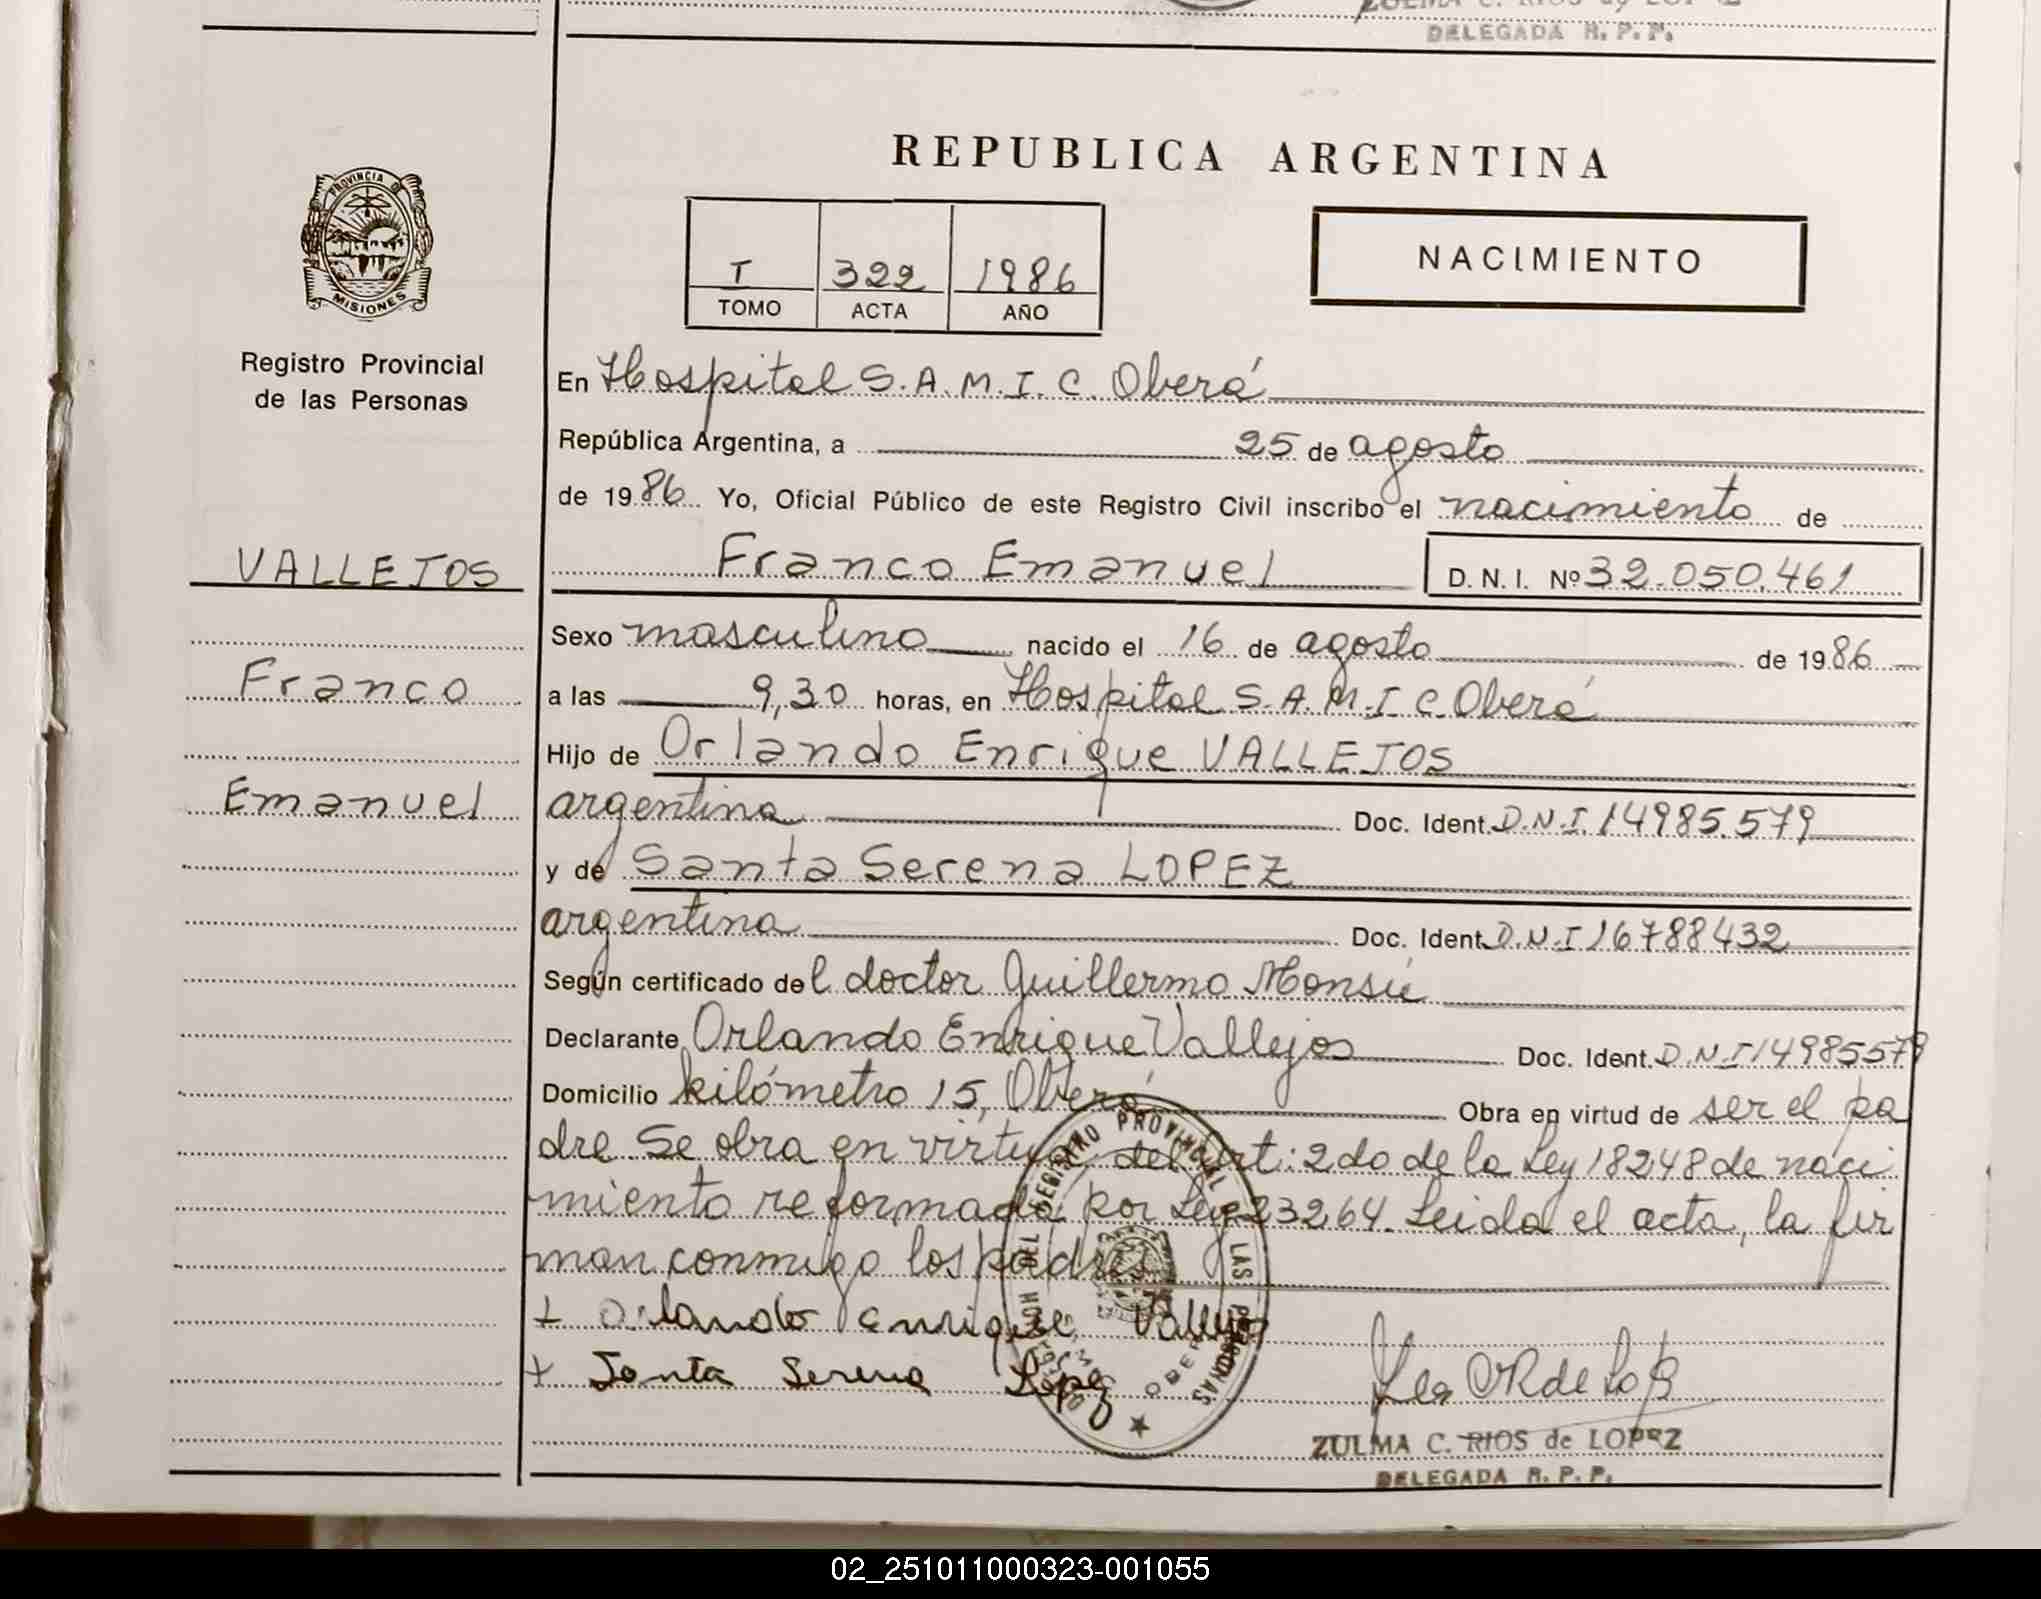 DELEGADA R. P. P.
REPUBLICA ARGENTINA
PROVINCIA DE
MISIONES
Registro Provincial
de las Personas
T 322 1986
TOMO ACTA AÑO
NACIMIENTO
En Hospital S.A.M.I.C. Oberá
República Argentina, a 25 de agosto
de 1986 Yo, Oficial Público de este Registro Civil inscribo el nacimiento de
VALLEJOS
Franco Emanuel D. N. I. Nº 32.050.461
Sexo masculino nacido el 16 de agosto de 1986
Franco
a las 9,30 horas, en Hospital S.A.M.I.C. Oberá
Hijo de Orlando Enrique VALLEJOS
Emanuel
argentina Doc. Ident. D.N.I. 14985.579
y de Santa Serena LOPEZ
argentina Doc. Ident. D.N.I 16788432
Según certificado del doctor Guillermo Monsú
Declarante Orlando Enrique Vallejos Doc. Ident. D.N.I 14985579
Domicilio kilómetro 15, Oberá Obra en virtud de ser el pa
dre. Se obra en virtud del Art: 2do de la Ley 18248 de naci
miento reformada por Ley 23264. Leida el acta, la fir
man conmigo los padres
+ Orlando Enrique Vallejos
+ Santa Serena Lopez
ZULMA C. RIOS de LOPEZ
DELEGADA R. P. P.
02_251011000323-001055